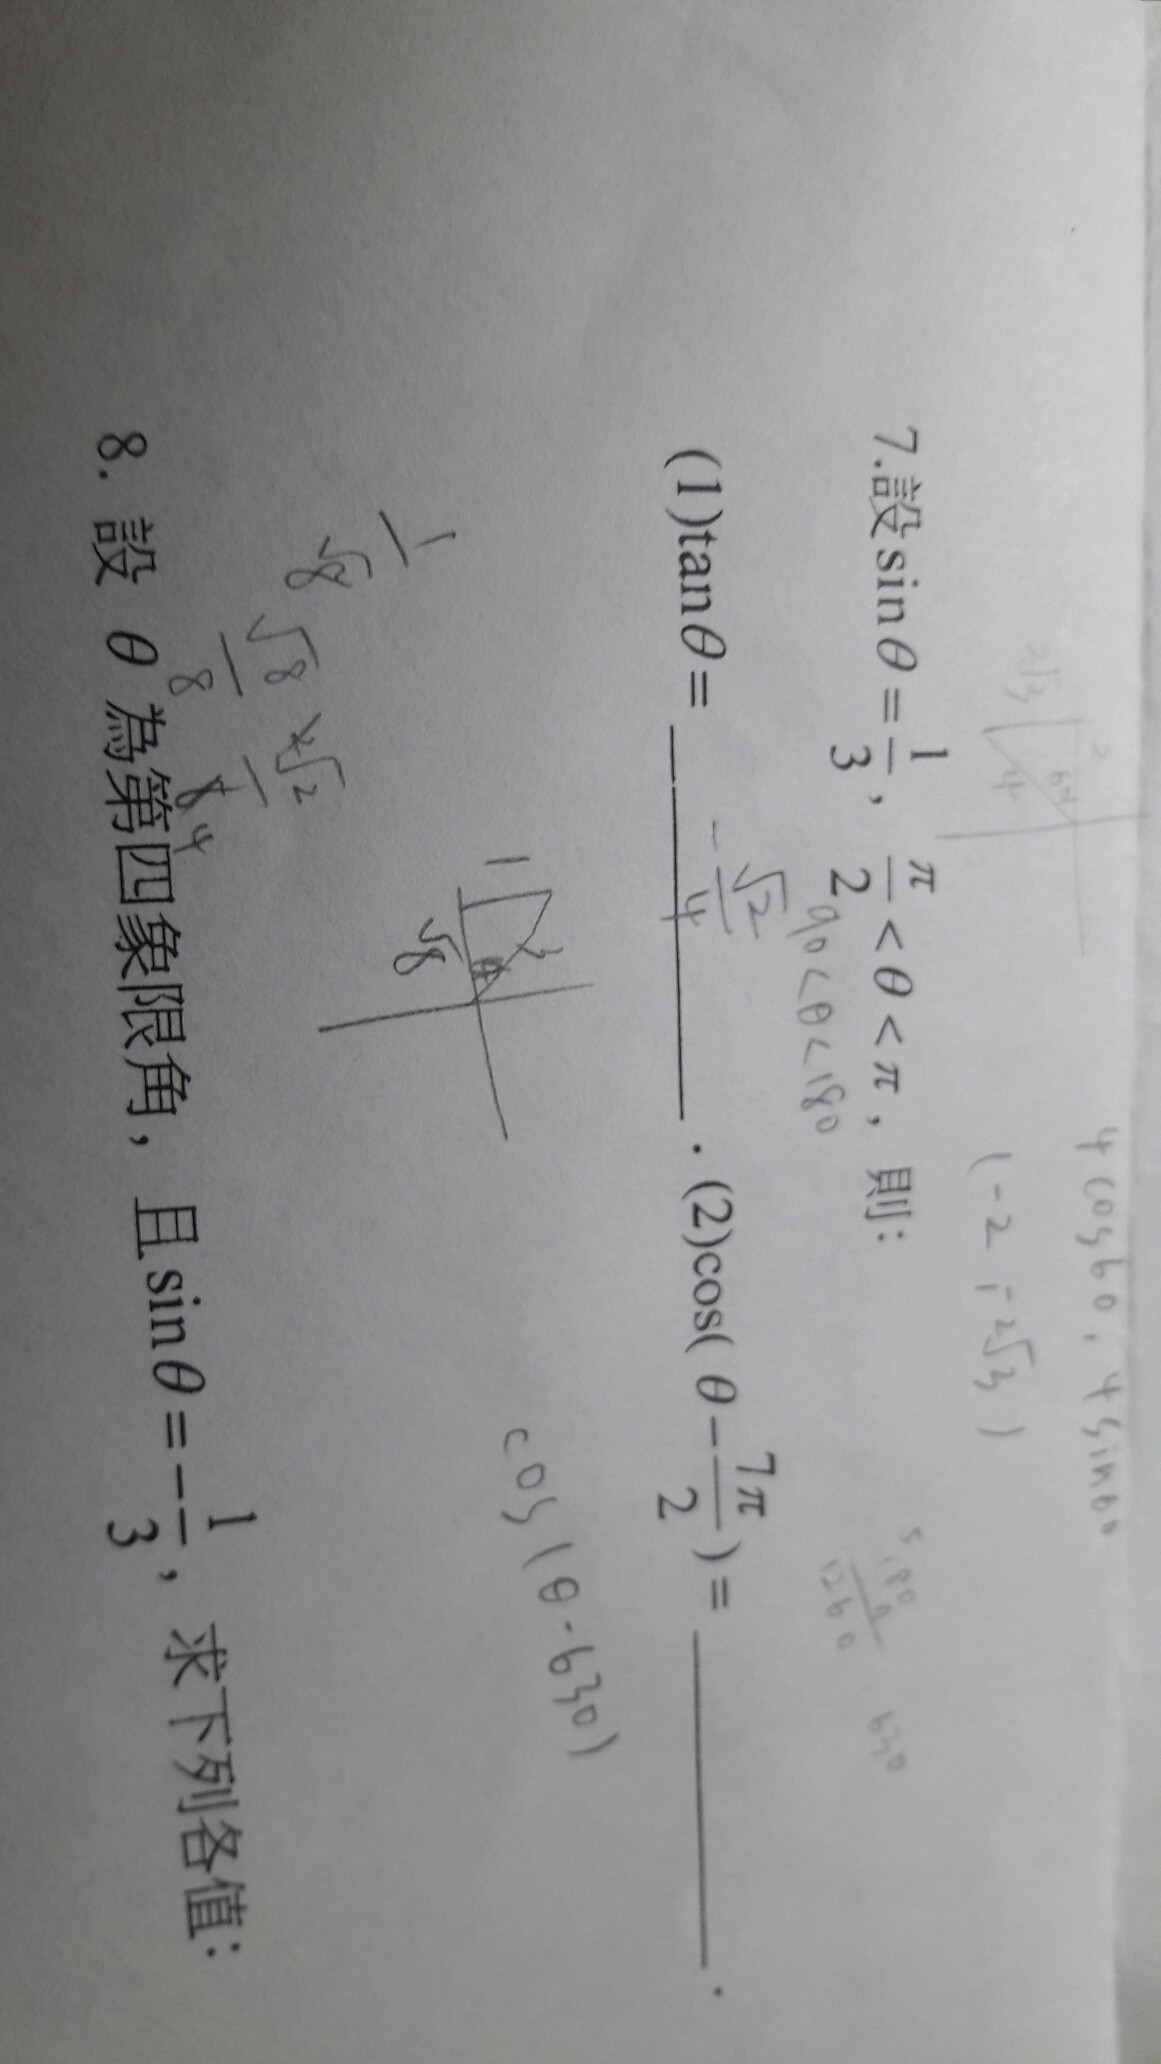 4cos60, 4sin60
(-2, -2√3)
2
60
2√3
4
7.設sinθ=1/3, π/2<θ<π, 則:
90<θ<180
180
1260
630
(1)tanθ= -√2/4 . (2)cos(θ-7π/2)= .
cos(θ-630)
1
3
θ
√8
1/√8
√8/8
2√2/8 4
8. 設 θ 為第四象限角, 且sinθ=-1/3, 求下列各值: